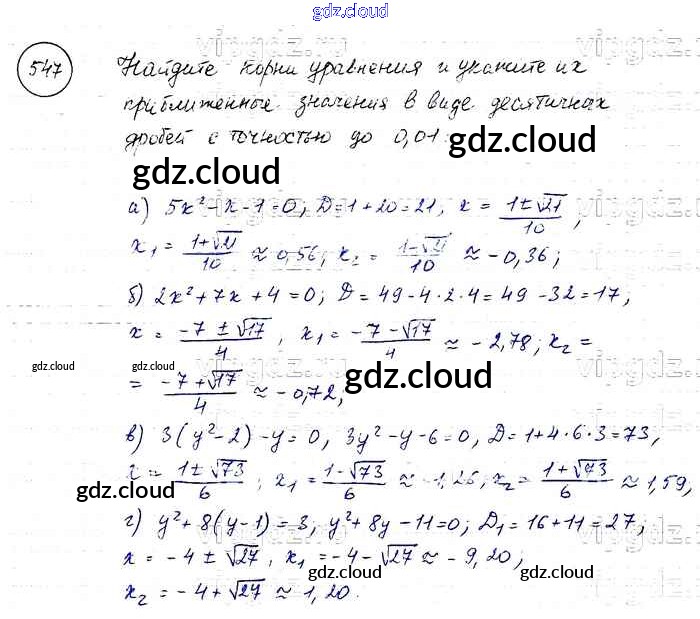 gdz.cloud
547 Найдите корни уравнения и укажите их
приближенные значения в виде десятичных
дробей с точностью до 0,01.
gdz.cloud
а) 5x² - x - 1 = 0; D = 1 + 20 = 21, x = (1 ± √21)/10,
x₁ = (1+√21)/10 ≈ 0,56, x₂ = (1-√21)/10 ≈ -0,36;
б) 2x² + 7x + 4 = 0; D = 49 - 4·2·4 = 49 - 32 = 17;
x = (-7 ± √17)/4, x₁ = (-7 - √17)/4 ≈ -2,78; x₂ =
gdz.cloud gdz.cloud gdz.cloud
= (-7 + √17)/4 ≈ -0,72,
в) 3(y² - 2) - y = 0, 3y² - y - 6 = 0, D = 1 + 4·6·3 = 73,
x = (1 ± √73)/6; x₁ = (1 - √73)/6 ≈ -1,26, x₂ = (1 + √73)/6 ≈ 1,59,
gdz.cloud gdz.cloud
г) y² + 8(y - 1) = 3, y² + 8y - 11 = 0; D₁ = 16 + 11 = 27;
x = -4 ± √27, x₁ = -4 - √27 ≈ -9,20;
gdz.cloud gdz.cloud
x₂ = -4 + √27 ≈ 1,20.